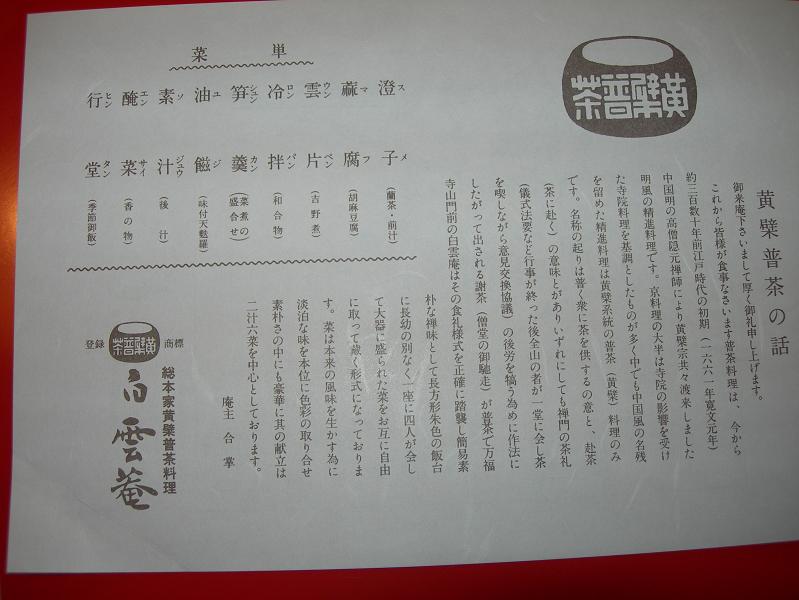 黄檗普茶
黄檗普茶の話
御来庵下さいまして厚く御礼申し上げます。
これから皆様が食事なさいます普茶料理は、今から
約三百数十年前江戸時代の初期(一六六一年寛文元年)
中国明の高僧隠元禅師により黄檗宗共々渡来しました
明風の精進料理です。京料理の大半は寺院の影響を受け
た寺院料理を基調としたものが多く中でも中国風の名残
を留めた精進料理は黄檗系統の普茶(黄檗)料理のみ
です。名称の起りは普く衆に茶を供するの意と、赴茶
(茶に赴く)の意味とがありいずれにしても禅門の茶礼
(儀式法要など行事が終った後全山の者が一堂に会し茶
を喫しながら意見交換協議)の後労を犒う為めに作法に
したがって出される謝茶(僧堂の御馳走)が普茶で万福
寺山門前の白雲庵はその食礼様式を正確に踏襲し簡易素
朴な禅味として長方形朱色の飯台
に長幼の別なく一座に四人が会し
て大器に盛られた菜をお互に自由
に取って蔵く形式になっておりま
す。菜は本来の風味を生かす為に
淡泊な味を本位に色彩の取り合せ
素朴さの中にも豪華に其の献立は
二汁六菜を中心としております。
庵主 合掌
単菜
澄ス子メ(蘭茶・前汁)
蔴マ腐フ(胡麻豆腐)
雲ウン片ペン(吉野煮)
冷ロン拌パン(和合物)
笋シュン羹カン(菜煮の盛合せ)
油ユ糍ジ(味付天麩羅)
素ソ汁ジュウ(後汁)
醃エン菜サイ(香の物)
行ヒン堂タン(季節御飯)
総本家黄檗普茶料理
登録 黄檗普茶 商標
白雲菴